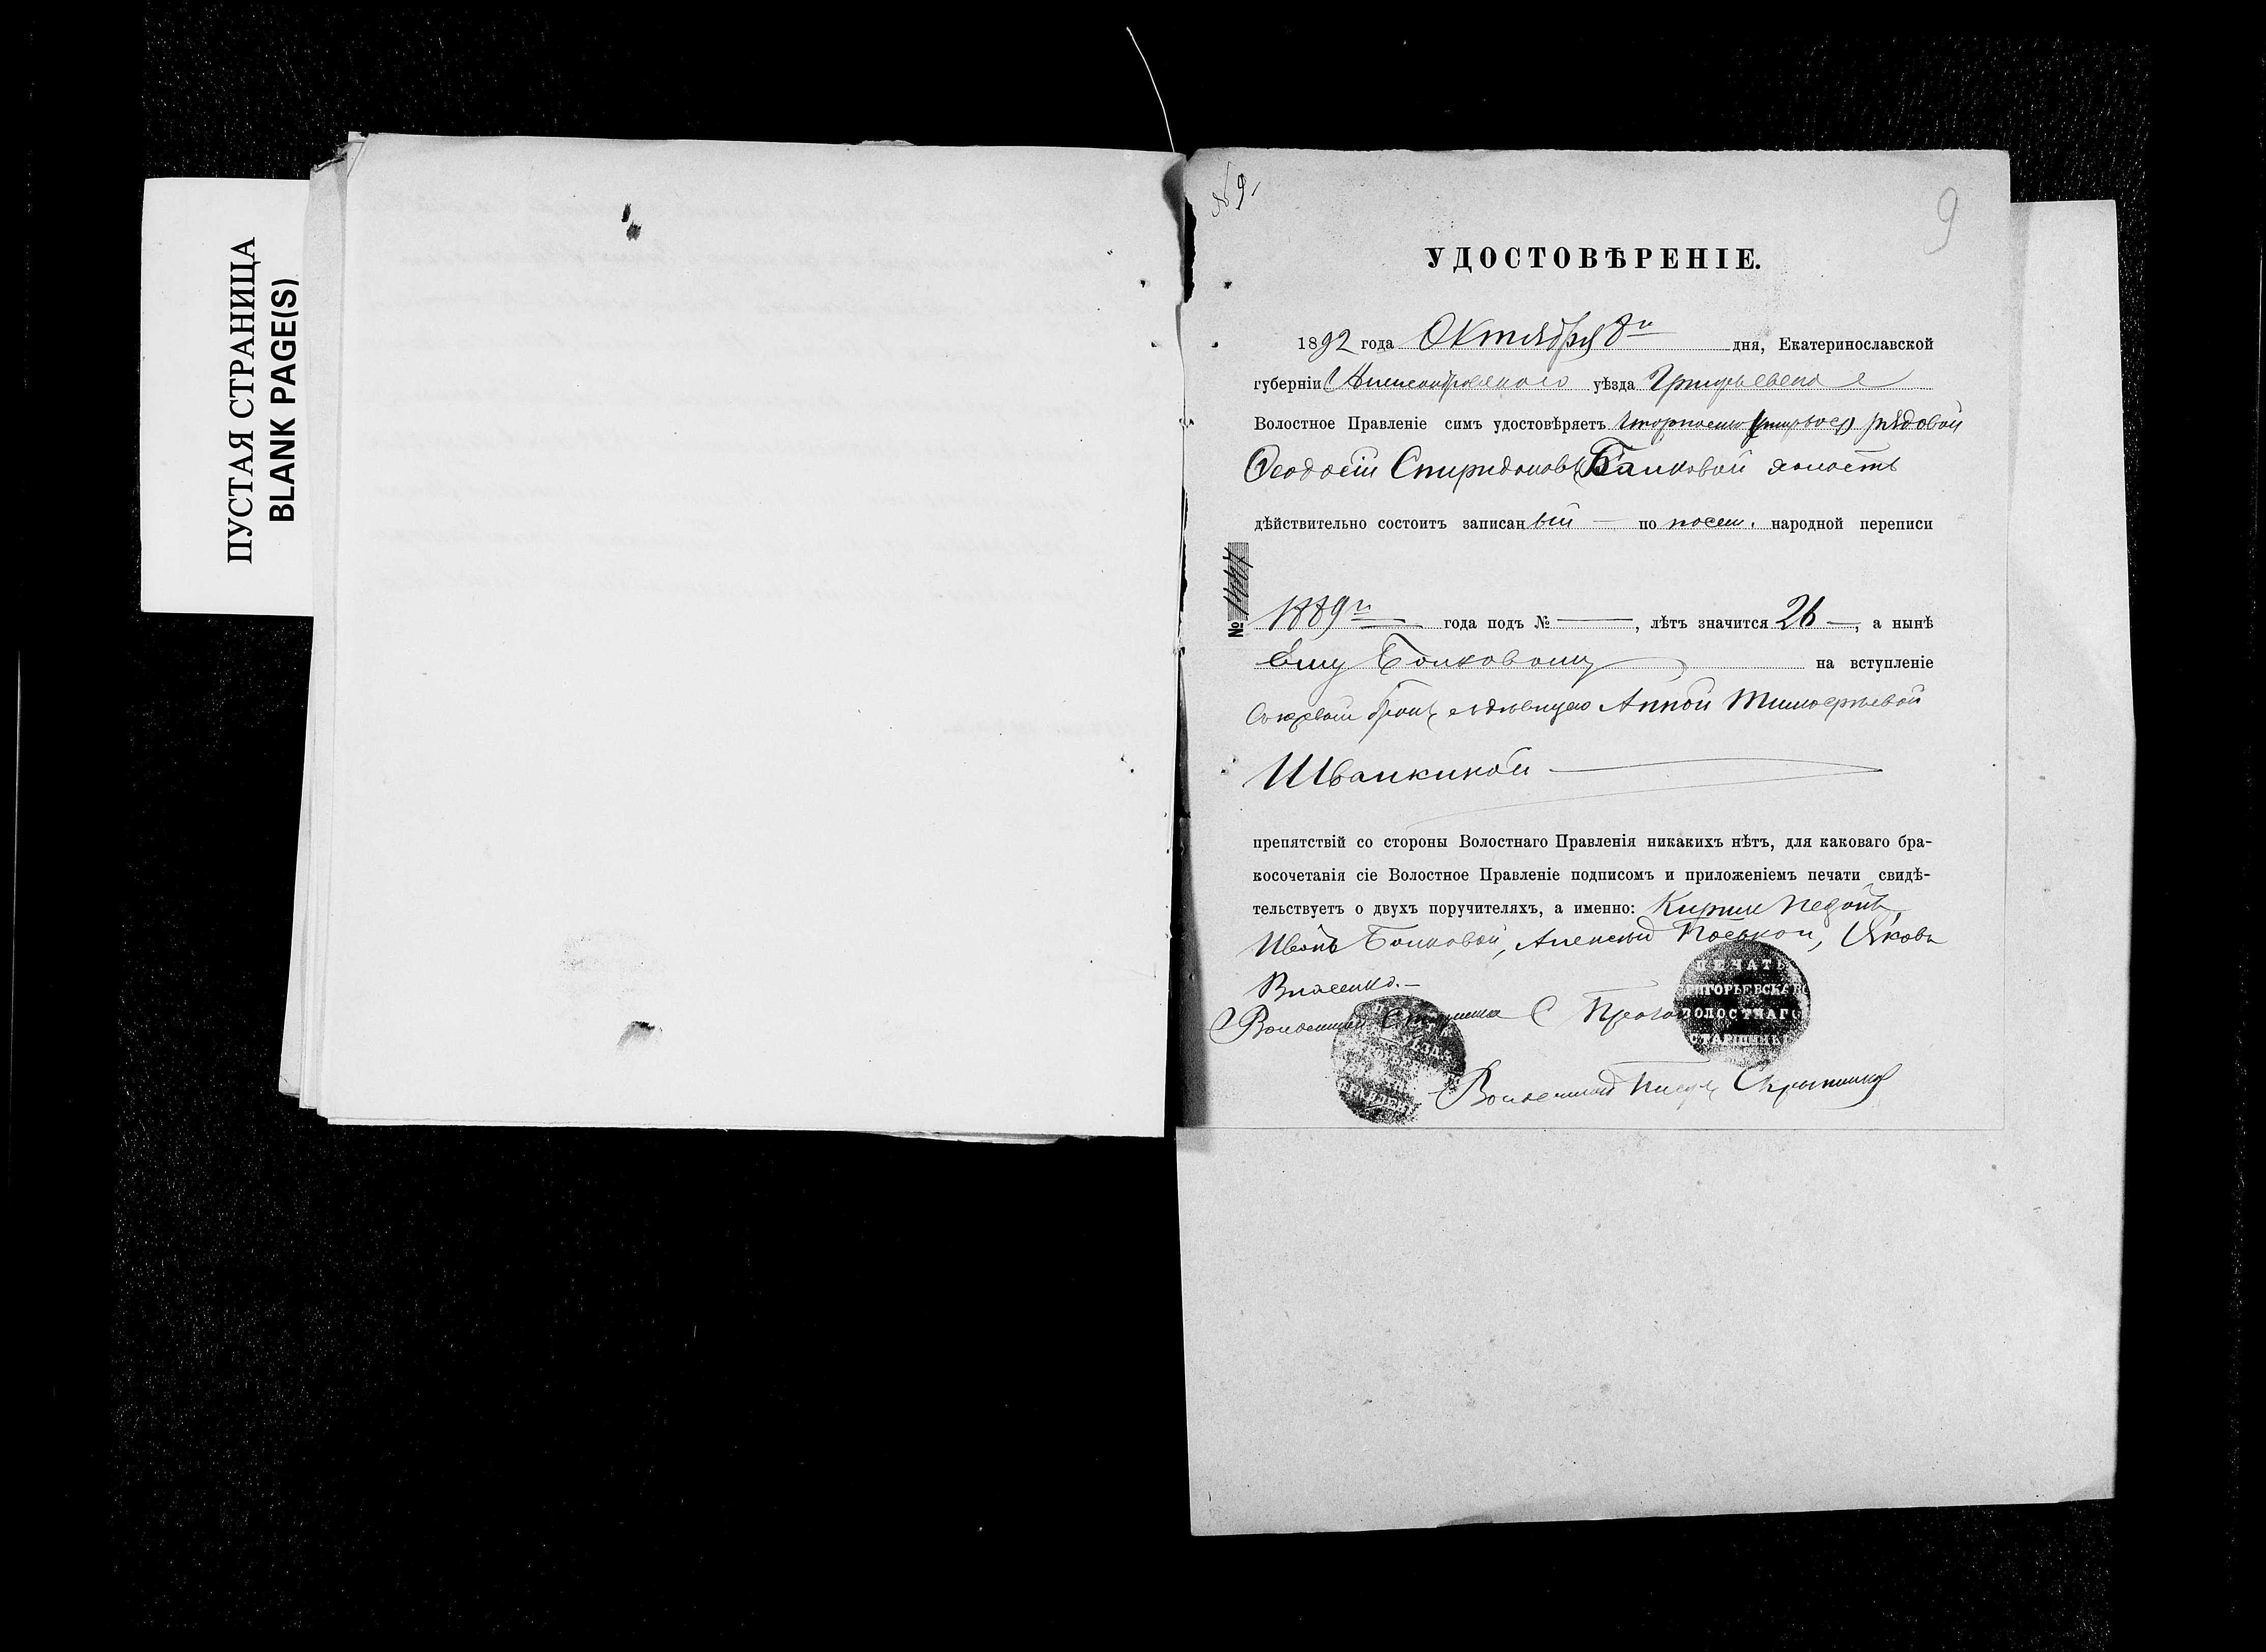 ПУСТАЯ СТРАНИЦА
BLANK PAGE(S)
№ 9
9
УДОСТОВѢРЕНІЕ.
1892 года Октября 8 дня, Екатеринославской
губерніи Александровскаго уѣзда Григорьевское
Волостное Правленіе симъ удостовѣряетъ рядовой
Феодосій Спиридоновъ Балковой
дѣйствительно состоитъ записанный — по посем. народной переписи
1889 года подъ № —, лѣтъ значится 26 —, а нынѣ
ему Болковому на вступленіе
бракъ съ дѣвицею Анной Тимофѣевой
Швалкиной
препятствій со стороны Волостнаго Правленія никакихъ нѣтъ, для каковаго бра-
косочетанія сіе Волостное Правленіе подписомъ и приложеніемъ печати свидѣ-
тельствуетъ о двухъ поручителяхъ, а именно: Кирилъ
Иванъ Болковой, Алексѣй Яковъ
Власенко.—
Волостной Старшина
ПЕЧАТЬ
ГРИГОРЬЕВСКАГО
ВОЛОСТНАГО
СТАРШИНЫ
Волостной Писарь